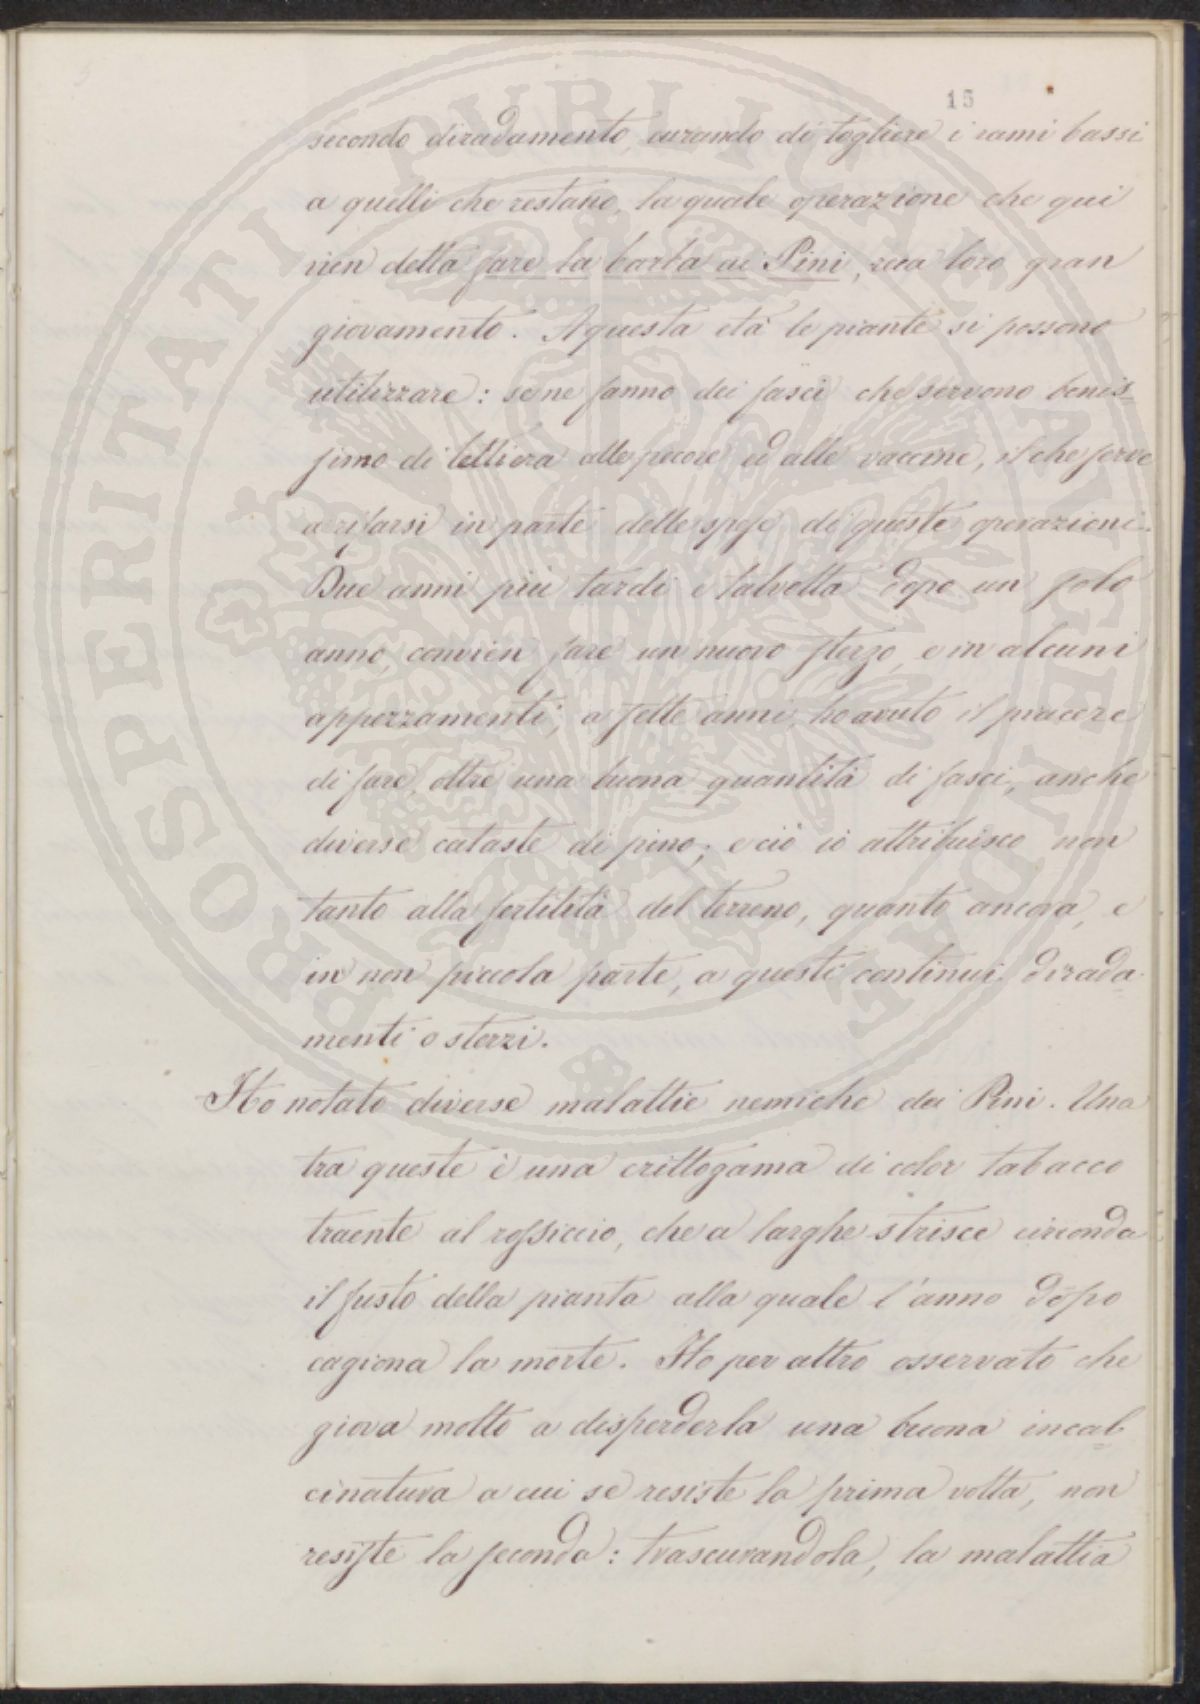 15
secondo diradamento, curando di togliere i rami bassi
a quelli che restano, la quale operazione che qui
vien detta fare la barba ai Pini, reca loro gran
giovamento. A questa età le piante si possono
utilizzare: se ne fanno dei fasci che servono benis-
simo di lettiera alle pecore ed alle vaccine, il che serve
a rifarsi in parte delle spese di queste operazioni.
Due anni più tardi e talvolta dopo un solo
anno, convien fare un nuovo sterzo, e in alcuni
appezzamenti, a sette anni, ho avuto il piacere
di fare, oltre una buona quantità di fasci, anche
diverse cataste di pino; e ciò io attribuisco non
tanto alla fertilità del terreno, quanto ancora, e
in non piccola parte, a questi continui dirada-
menti o sterzi.
Ho notato diverse malattie nemiche dei Pini. Una
tra queste è una crittogama di color tabacco
traente al rossiccio, che a larghe strisce circonda
il fusto della pianta alla quale l'anno dopo
cagiona la morte. Ho per altro osservato che
giova molto a disperderla una buona incal-
cinatura a cui se resiste la prima volta, non
resiste la seconda: trascurandola, la malattia
PROSPERITATI PVBLICAE AVGENDAE